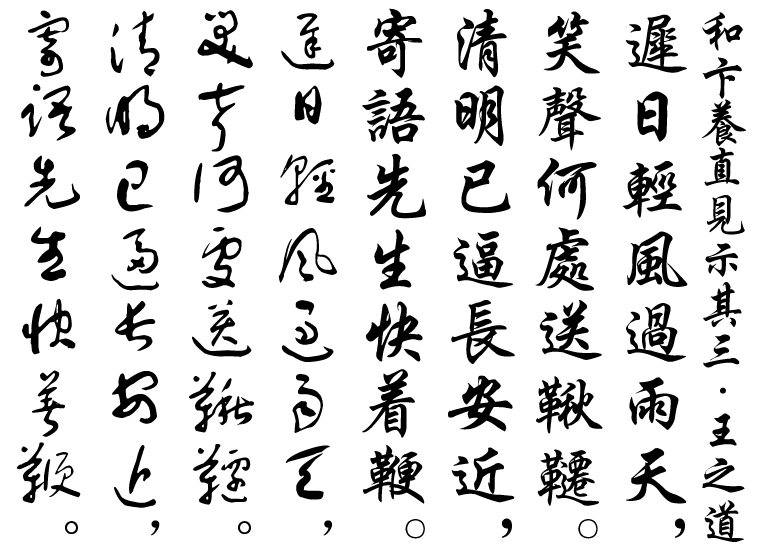 和卞養直見示其三·王之道
遲日輕風過雨天，
笑聲何處送鞦韆。
清明已逼長安近，
寄語先生快着鞭。
遲日輕風過雨天，
笑聲何處送鞦韆。
清明已逼長安近，
寄語先生快着鞭。